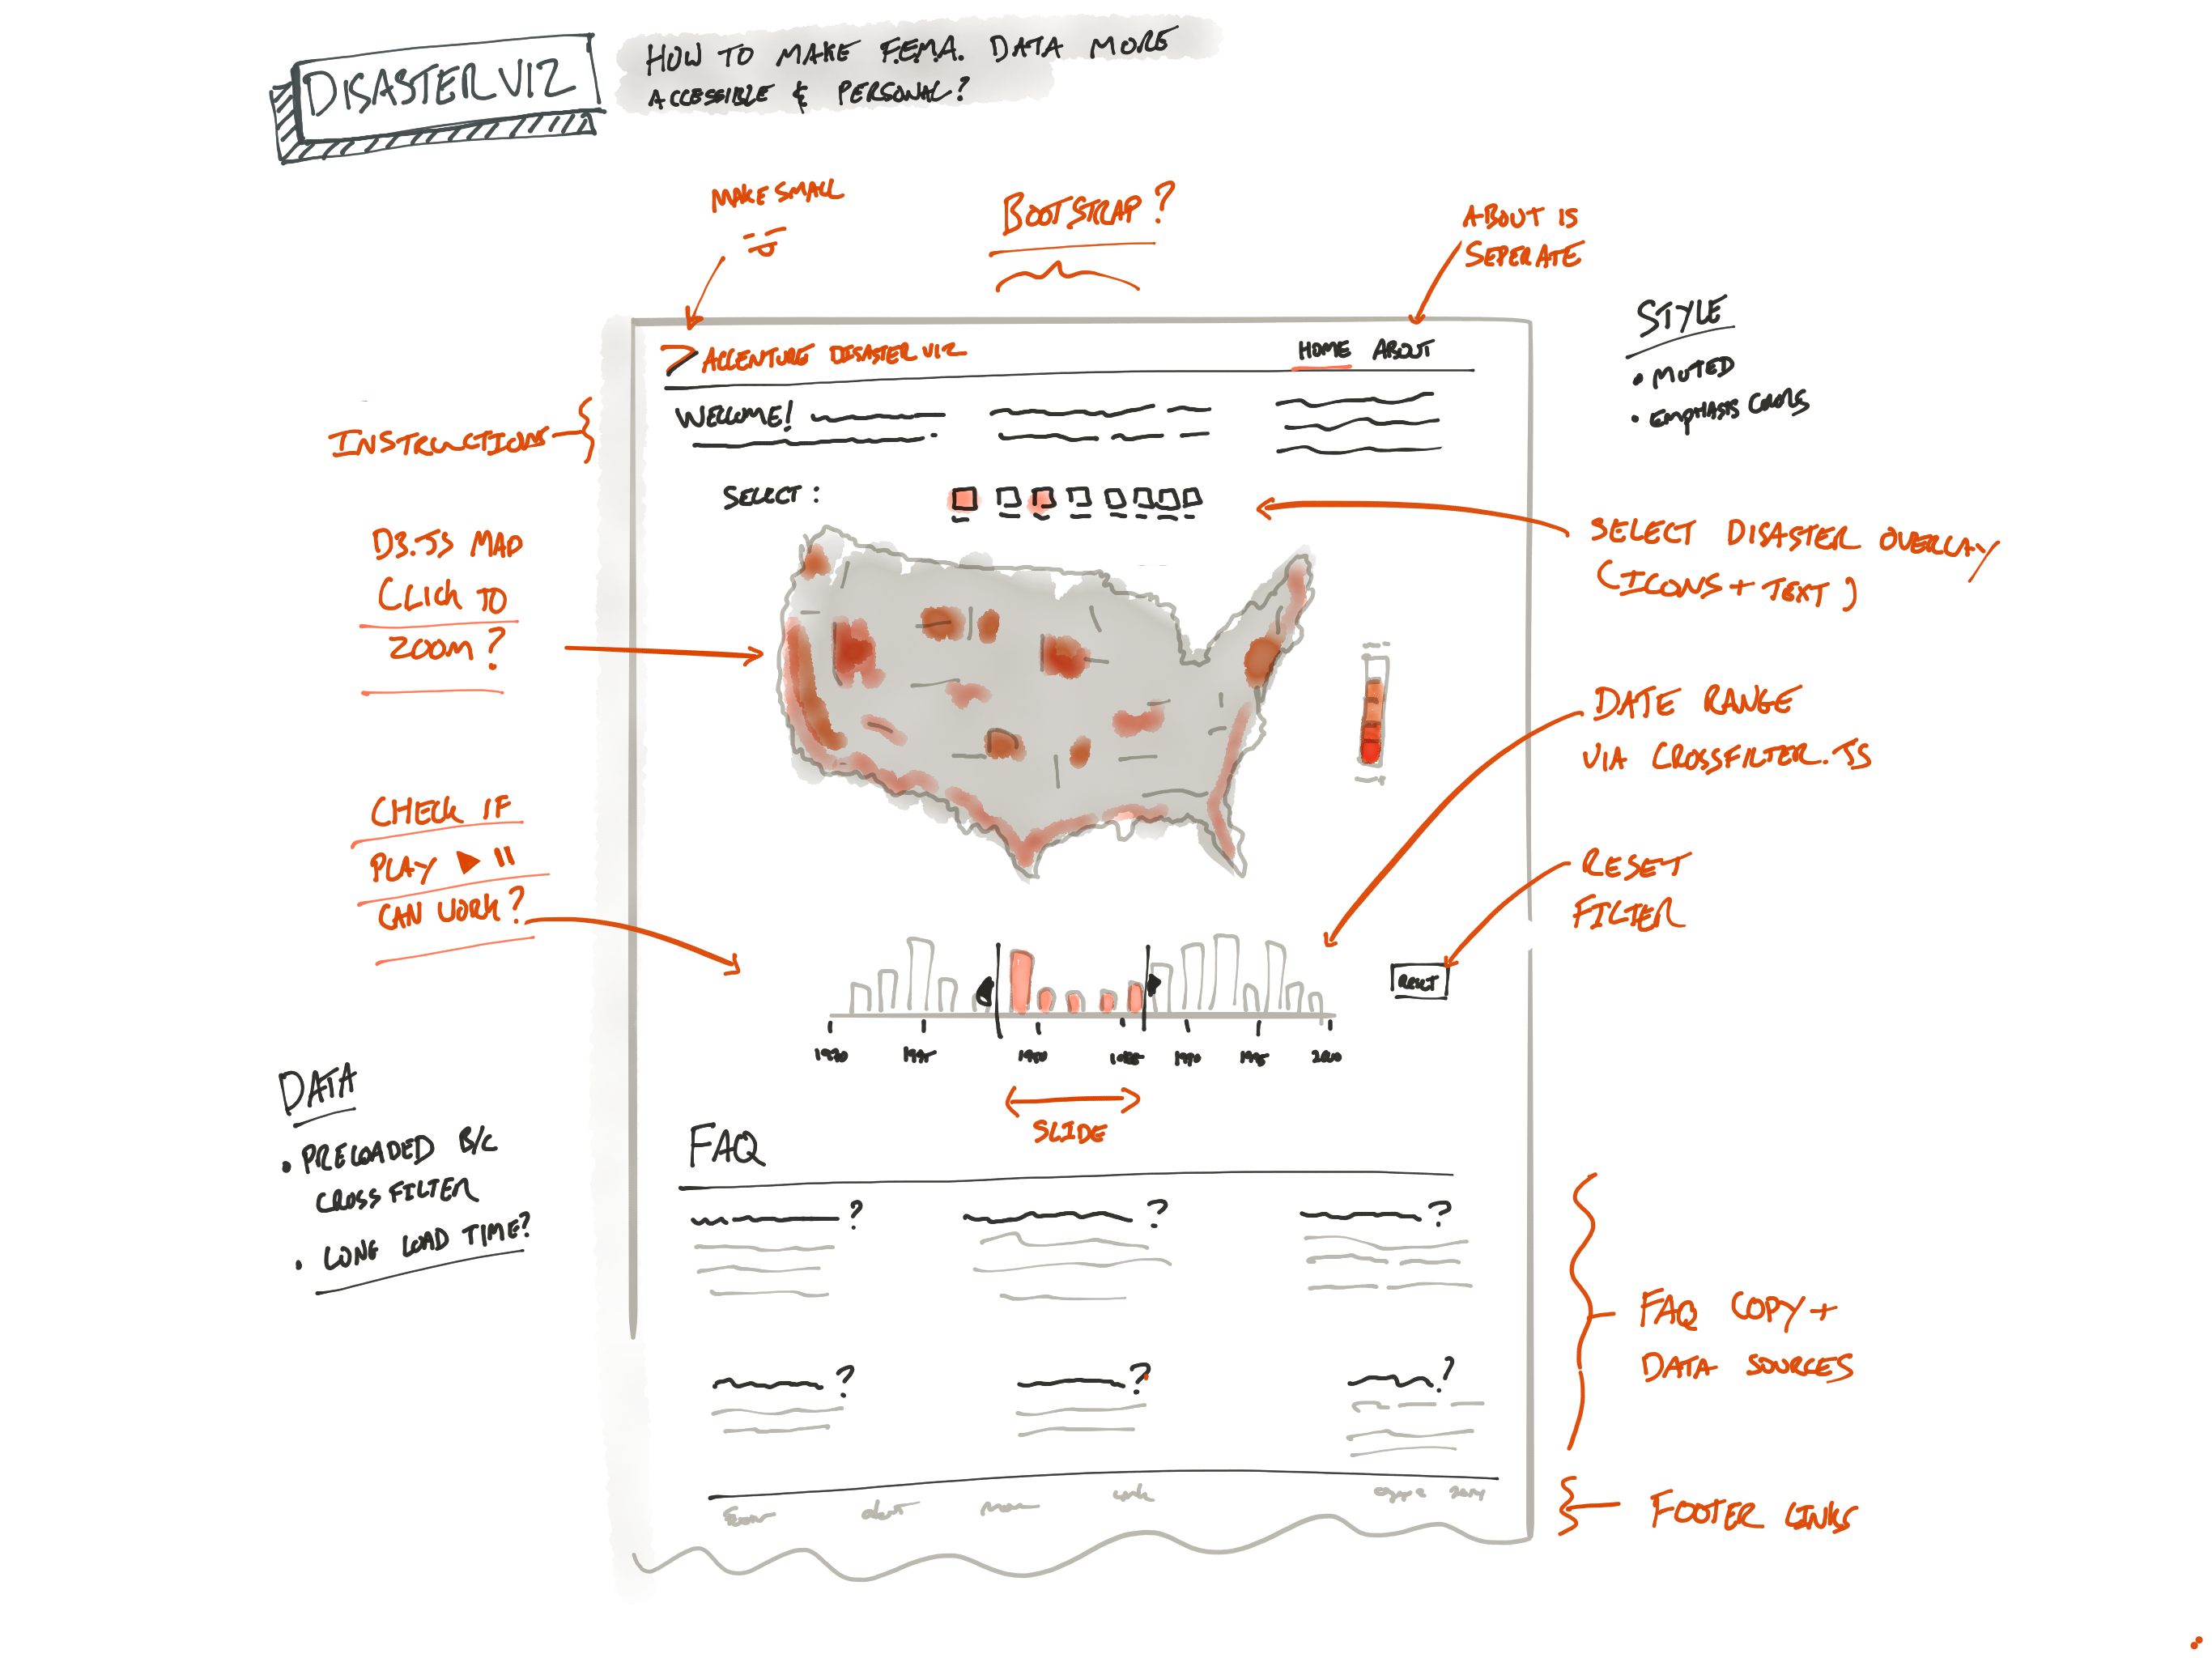 DISASTER VIZ
HOW TO MAKE F.E.M.A. DATA MORE
ACCESSIBLE & PERSONAL?
MAKE SMALL
BOOTSTRAP?
ABOUT IS
SEPERATE
STYLE
• MUTED
• EMPHASIS COLORS
> ACCENTURE DISASTER VIZ
HOME ABOUT
INSTRUCTIONS
WELCOME!
SELECT:
SELECT DISASTER OVERLAY
(ICONS + TEXT)
D3.JS MAP
CLICK TO
ZOOM?
DATE RANGE
VIA CROSSFILTER.JS
CHECK IF
PLAY
CAN WORK?
RESET
FILTER
RESET
1970 1975 1980 1985 1990 1995 2000
SLIDE
DATA
• PRELOADED B/C
CROSSFILTER
• LONG LOAD TIME?
FAQ
? ? ?
? ? ?
FAQ COPY +
DATA SOURCES
FOOTER LINKS